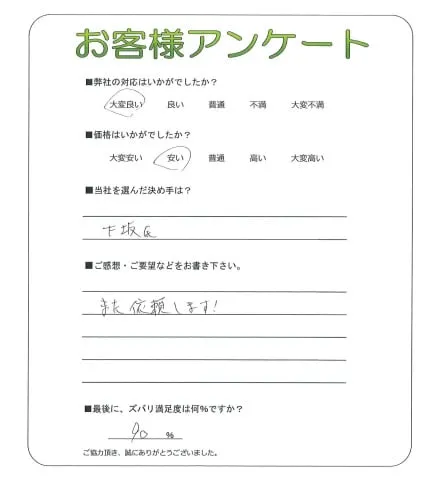 お客様アンケート
■弊社の対応はいかがでしたか？
大変良い 良い 普通 不満 大変不満
■価格はいかがでしたか？
大変安い 安い 普通 高い 大変高い
■当社を選んだ決め手は？
下坂氏
■ご感想・ご要望などをお書き下さい。
また依頼します！
■最後に、ズバリ満足度は何%ですか？
90 %
ご協力頂き、誠にありがとうございました。